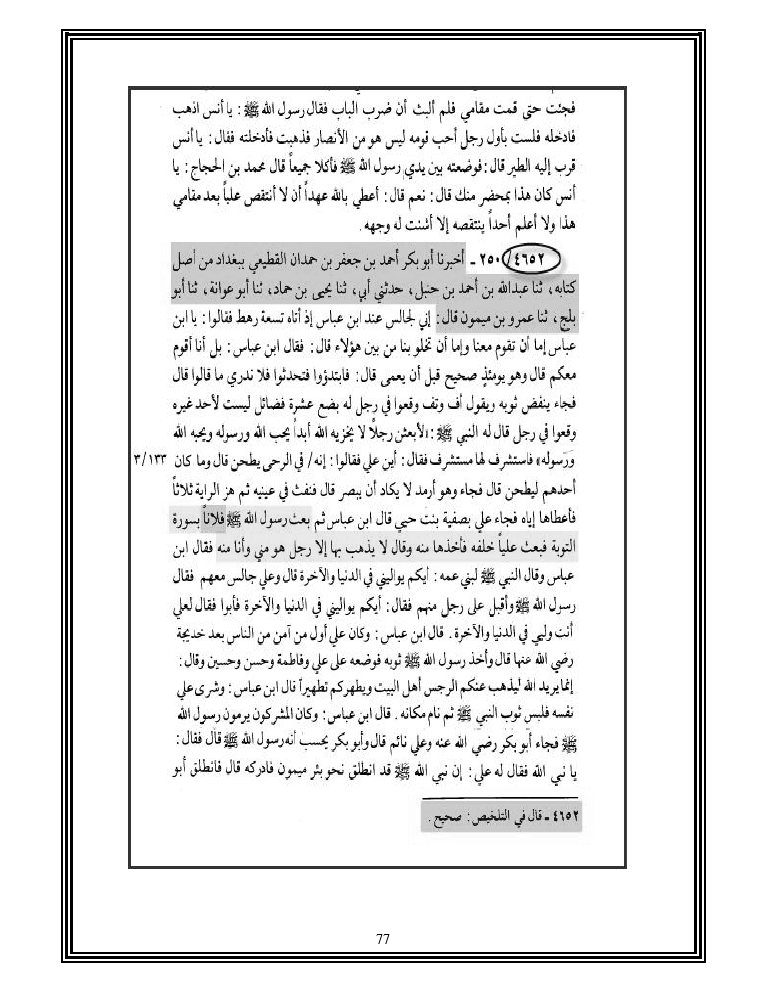 فجئت حتى قمت مقامي فلم ألبث أن ضرب الباب فقال رسول الله ﷺ: يا أنس اذهب
فادخله فلست بأول رجل أحب قومه ليس هو من الأنصار فذهبت فأدخلته فقال: يا أنس
قرب إليه الطير قال: فوضعته بين يدي رسول الله ﷺ فأكلا جميعاً قال محمد بن الحجاج: يا
أنس كان هذا بمحضر منك قال: نعم قال: أعطي بالله عهداً أن لا أنتقص علياً بعد مقامي
هذا ولا أعلم أحداً ينتقصه إلا أشنت له وجهه.
٤٦٥٢/ ٢٥٠ ـ أخبرنا أبو بكر أحمد بن جعفر بن حمدان القطيعي ببغداد من أصل
كتابه، ثنا عبدالله بن أحمد بن حنبل، حدثني أبي، ثنا يحيى بن حماد، ثنا أبو عوانة، ثنا أبو
بلج، ثنا عمرو بن ميمون قال: إني لجالس عند ابن عباس إذ أتاه تسعة رهط فقالوا: يا ابن
عباس إما أن تقوم معنا وإما أن تخلو بنا من بين هؤلاء قال: فقال ابن عباس: بل أنا أقوم
معكم قال وهو يومئذٍ صحيح قبل أن يعمى قال: فابتدؤوا فتحدثوا فلا ندري ما قالوا قال
فجاء ينفض ثوبه ويقول أف وتف وقعوا في رجل له بضع عشرة فضائل ليست لأحد غيره
وقعوا في رجل قال له النبي ﷺ: «لأبعثن رجلاً لا يخزيه الله أبداً يحب الله ورسوله ويحبه الله
ورسوله» فاستشرف لها مستشرف فقال: أين علي فقالوا: إنه/ في الرحى يطحن قال وما كان ٣/١٣٣
أحدهم ليطحن قال فجاء وهو أرمد لا يكاد أن يبصر قال فنفث في عينيه ثم هز الراية ثلاثاً
فأعطاها إياه فجاء علي بصفية بنت حيي قال ابن عباس ثم بعث رسول الله ﷺ فلاناً بسورة
التوبة فبعث علياً خلفه فأخذها منه وقال لا يذهب بها إلا رجل هو مني وأنا منه فقال ابن
عباس وقال النبي ﷺ لبني عمه: أيكم يواليني في الدنيا والآخرة قال وعلي جالس معهم فقال
رسول الله ﷺ وأقبل على رجل منهم فقال: أيكم يواليني في الدنيا والآخرة فأبوا فقال لعلي
أنت وليي في الدنيا والآخرة. قال ابن عباس: وكان علي أول من آمن من الناس بعد خديجة
رضي الله عنها قال وأخذ رسول الله ﷺ ثوبه فوضعه على علي وفاطمة وحسن وحسين وقال:
إنما يريد الله ليذهب عنكم الرجس أهل البيت ويطهركم تطهيراً قال ابن عباس: وشرى علي
نفسه فلبس ثوب النبي ﷺ ثم نام مكانه. قال ابن عباس: وكان المشركون يرمون رسول الله
ﷺ فجاء أبو بكر رضي الله عنه وعلي نائم قال وأبو بكر يحسب أنه رسول الله ﷺ قال فقال:
يا نبي الله فقال له علي: إن نبي الله ﷺ قد انطلق نحو بئر ميمون فادركه قال فانطلق أبو
٤٦٥٢ ـ قال في التلخيص: صحيح.
77